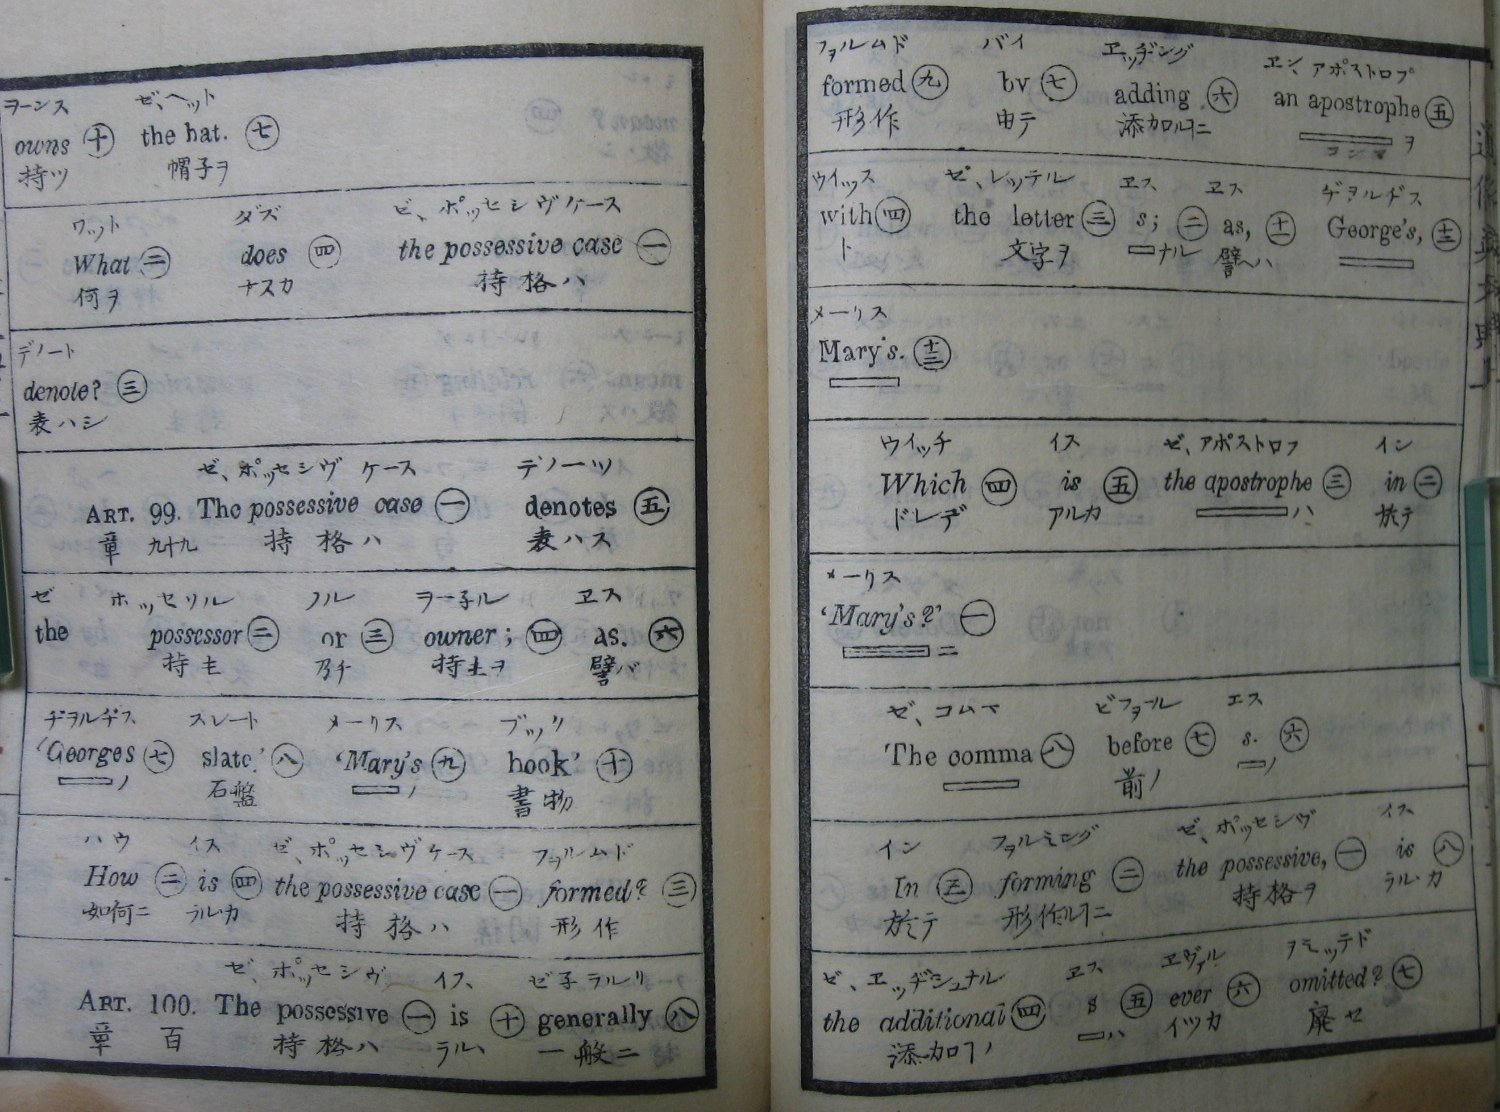 ヲーンス ゼ、ヘット
owns 十 the hat. 七
持ツ 帽子ヲ
ワット ダズ ゼ、ポッセシヴケース
What 二 does 四 the possessive case 一
何ヲ ナスカ 持格ハ
デノート
denote? 三
表ハシ
ゼ、ポッセシヴ ケース デノーツ
ART. 99. The possessive case 一 denotes 五
章 九十九 持格ハ 表ハス
ゼ ポッセリル ノル ヲー子ル ヱス
the possessor 二 or 三 owner; 四 as. 六
持主 乃チ 持主ヲ 譬バ
ヂヲルヂス スレート メーリス ブック
'Georges 七 slate.' 八 'Mary's 九 book' 十
ノ 石盤 ノ 書物
ハウ イス ゼ、ポッセシヴケース フヲルムド
How 二 is 四 the possessive case 一 formed? 三
如何ニ ラルカ 持格ハ 形作
ゼ、ポッセシヴ イス ゼ子ラルリ
ART. 100. The possessive 一 is 十 generally 八
章 百 持格ハ ラル 一般ニ
フヲルムド バイ ヱッヂング ヱン、アポストロプ
formed 九 by 七 adding 六 an apostrophe 五
形作 由テ 添加ルヿニ コンマ ヲ
ウイッス ゼ、レッテル ヱス ヱス ヂヲルヂス
with 四 the letter 三 s; 二 as, 十一 George's, 十二
ト 文字ヲ ナル 譬ヘハ
メーリス
Mary's. 十三
ウイッチ イス ゼ、アポストロフ イン
Which 四 is 五 the apostrophe 三 in 二
ドレヂ アルカ ハ 於テ
メーリス
'Mary's?' 一
ニ
ゼ、コムマ ビフヲール エス
'The comma 八 before 七 s. 六
前ノ ノ
イン フヲルミング ゼ、ポッセシヴ イス
In 三 forming 二 the possessive, 一 is 八
於テ 形作ルヿニ 持格ヲ ラルカ
ゼ、ヱッヂショナル ヱス ヱヴァル ヲミッテド
the additional 四 s 五 ever 六 omitted? 七
添加ノ ハ イツカ 廃セ